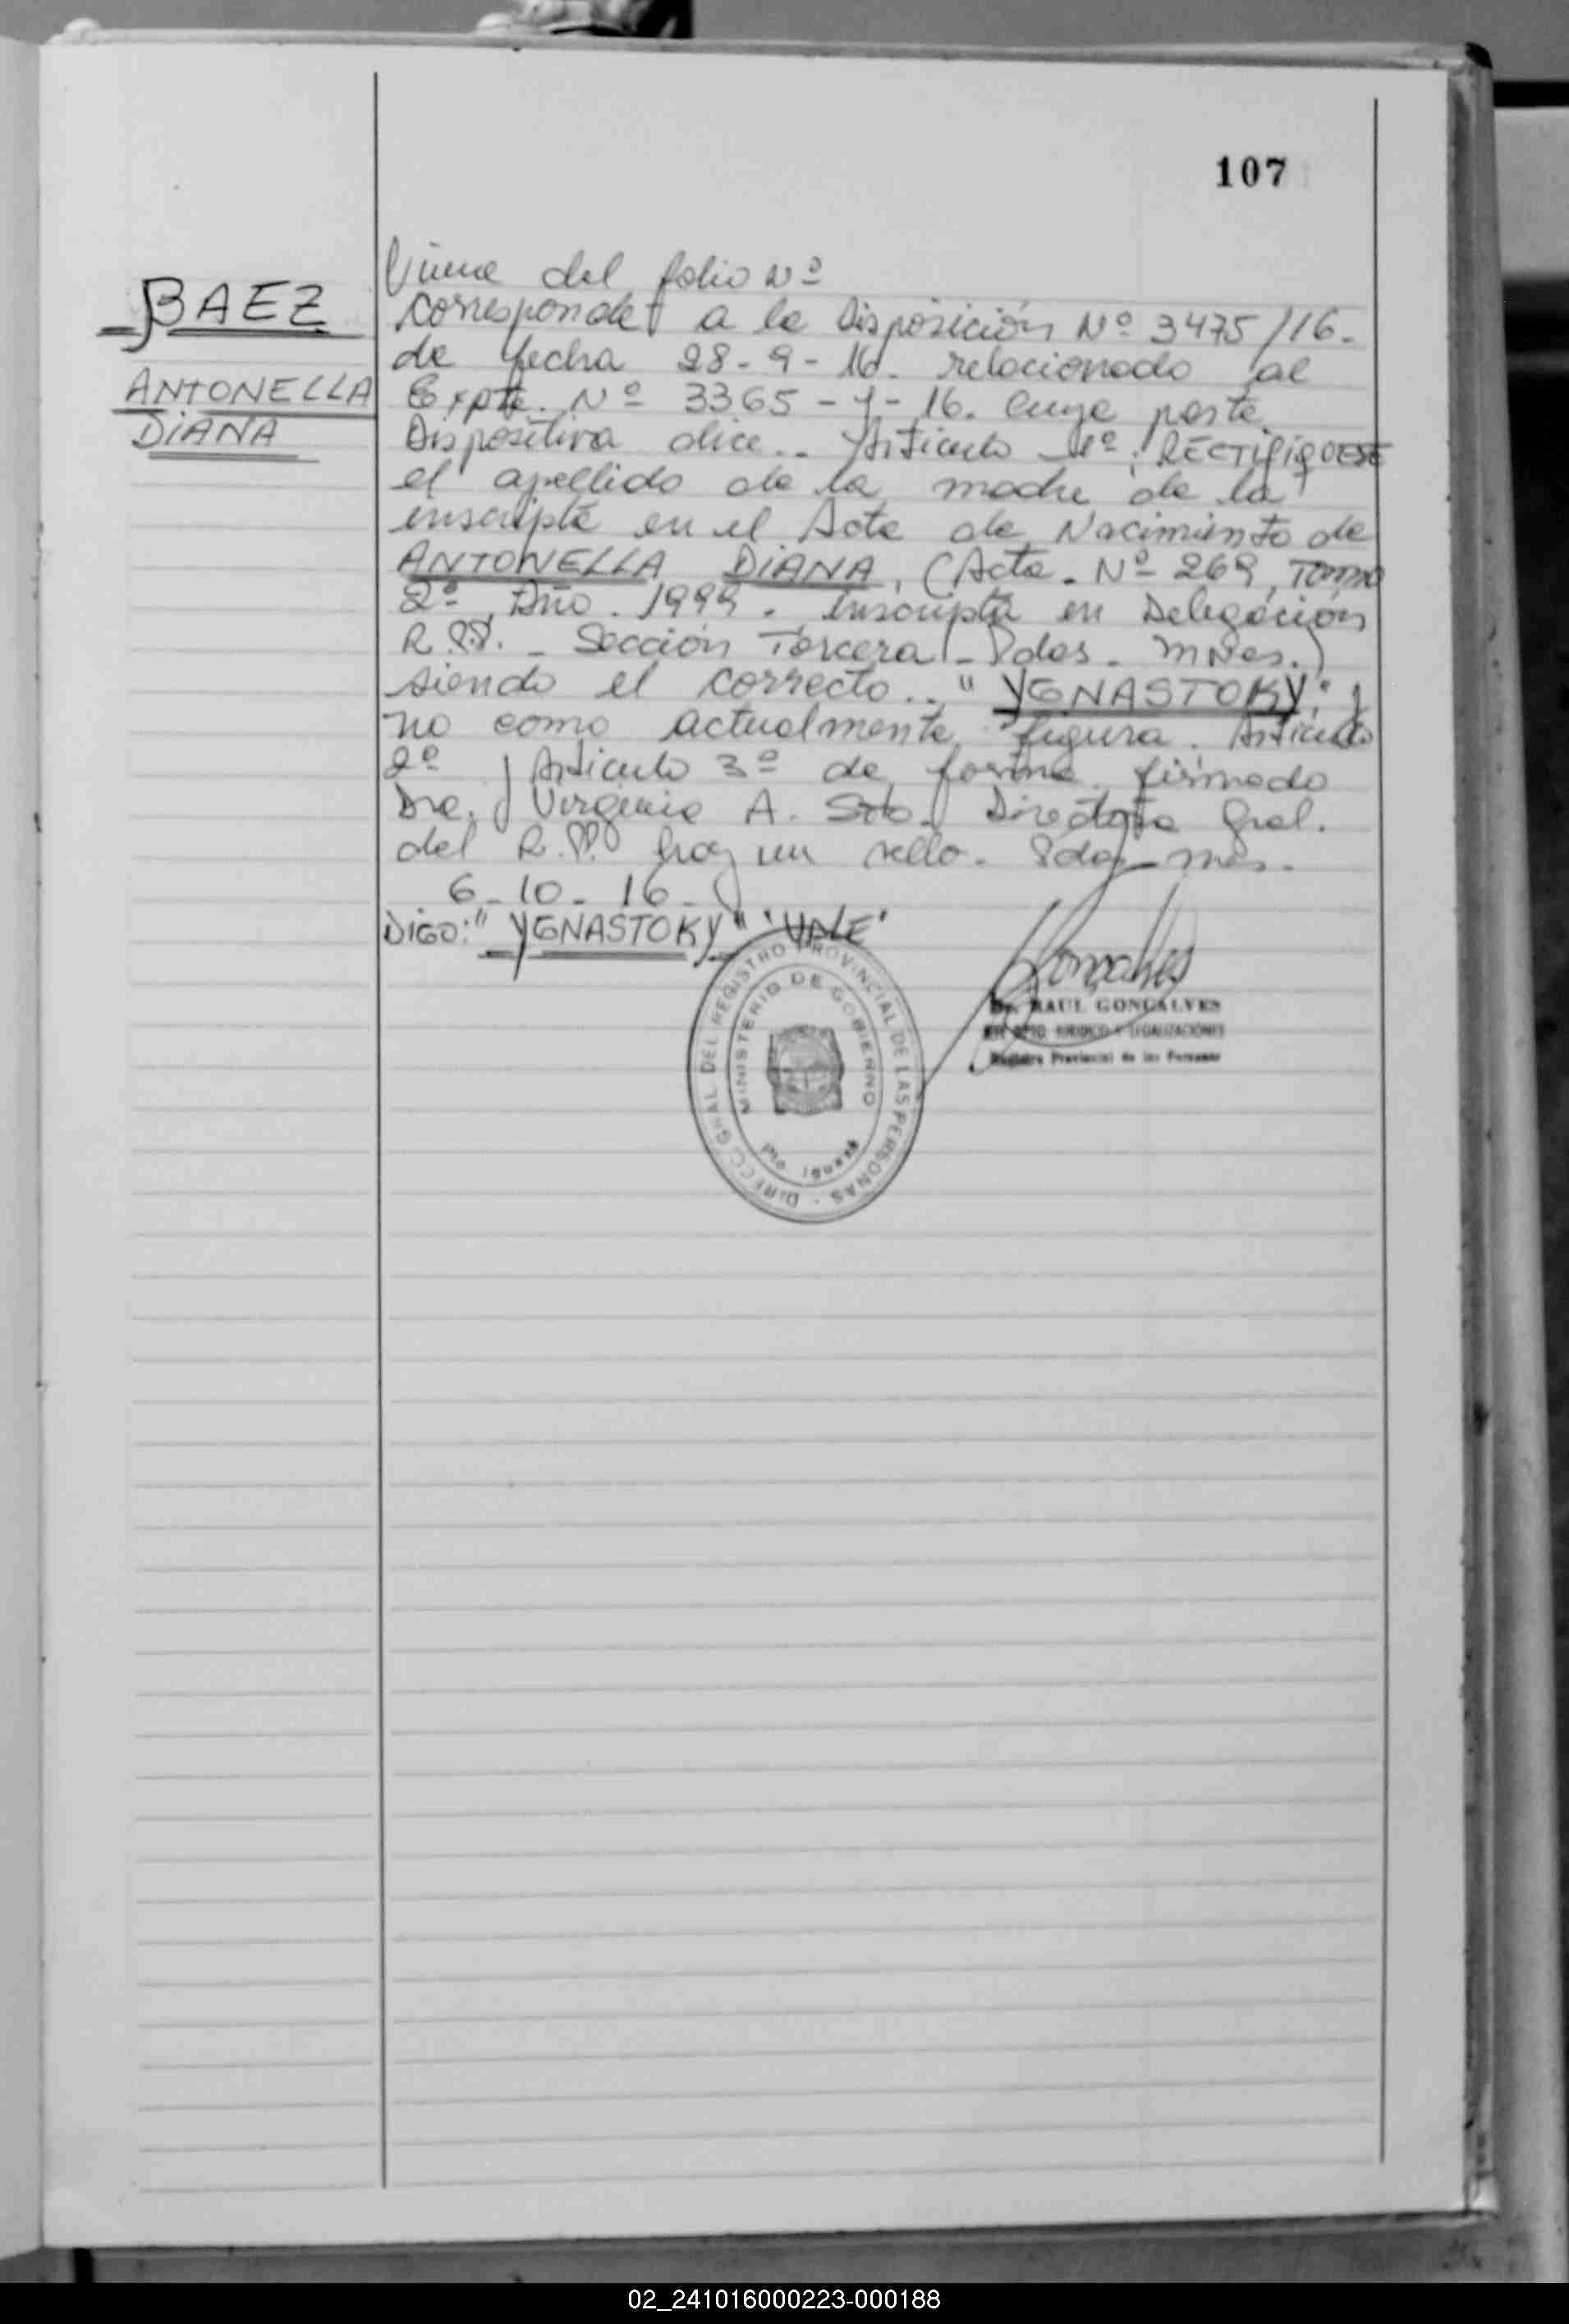 107
BAEZ
ANTONELLA
DIANA
Viene del folio Nº
corresponde a la Disposición Nº 3475/16-
de fecha 28-9-16. relacionado al
Expte. Nº 3365-Y-16. Cuya parte
Dispositiva dice.. Articulo 1º: RECTIFIQUESE
el apellido de la madre de la
inscripta en el Acta de Nacimiento de
ANTONELLA DIANA, (Acta. Nº 269, Tomo
2º, Año. 1999. inscripta en Delegación
R.P.P. - Sección Tercera - Pdas. Mnes.)
siendo el correcto.. "YGNASTOKY"; y
no como actualmente figura. Articulo
2º y Articulo 3º de forma firmado
Dra. Virginia A. Directora Gral.
del R.P.P. hay un sello. Pdas - Mns.
6-10-16-
DIGO: "YGNASTOKY" "VALE"
DIRECC. GRAL DEL REGISTRO PROVINCIAL DE LAS PERSONAS -
MINISTERIO DE GOBIERNO
Dr. RAUL GONCALVES
JURIDICO Y LEGALIZACIONES
Registro Provincial de las Personas
02_241016000223-000188